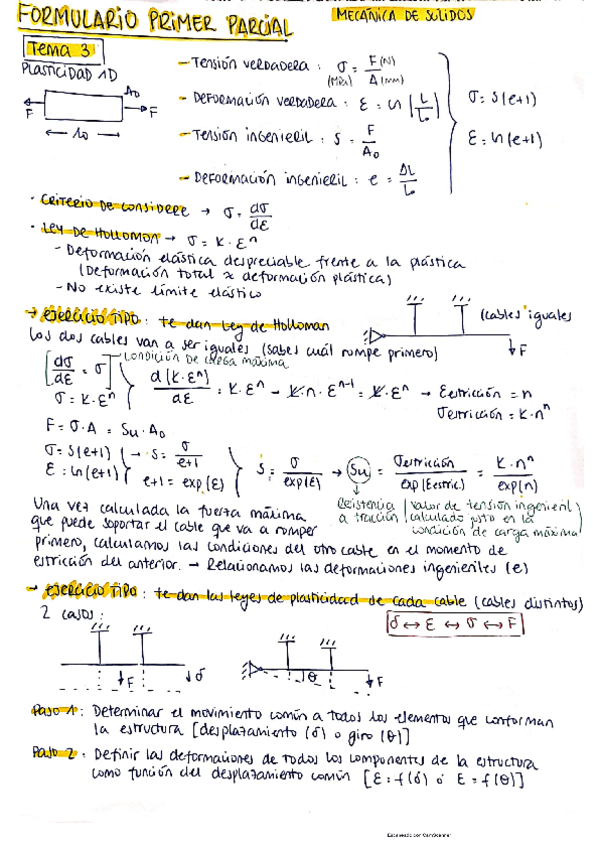 FORMULARIO PRIMER PARCIAL
MECÁNICA DE SÓLIDOS
Tema 3
PLASTICIDAD 1D
A₀
F
F
l₀
- Tensión verdadera : σ = F(N) / A(mm)
(MPa)
- Deformación verdadera : ε = ln (L / L₀)
- Tensión ingenieril : s = F / A₀
- Deformación ingenieril : e = ΔL / L₀
σ = s(e+1)
ε = ln(e+1)
· Criterio de Considère → σ = dσ/dε
· Ley de Hollomon → σ = K · εⁿ
- Deformación elástica despreciable frente a la plástica
(Deformación total ≈ deformación plástica)
- No existe límite elástico
→ EJERCICIO TIPO : te dan Ley de Holloman
(cables iguales
Los dos cables van a ser iguales (sabes cuál rompe primero)
F
CONDICIÓN DE CARGA MÁXIMA
dσ/dε = σ
σ = K · εⁿ
d(K · εⁿ)/dε = K · εⁿ → K · n · εⁿ⁻¹ = K · εⁿ → Eestricción = n
σestricción = K · nⁿ
F = σ · A = Su · A₀
σ = s(e+1) → s = σ/(e+1)
ε = ln(e+1) e+1 = exp(ε)
s = σ/exp(ε) → Su = σestricción/exp(Eestric.) = K · nⁿ/exp(n)
Resistencia a tracción (valor de tensión ingenieril calculado justo en la condición de carga máxima)
Una vez calculada la fuerza máxima
que puede soportar el cable que va a romper
primero, calculamos las condiciones del otro cable en el momento de
estricción del anterior. → Relacionamos las deformaciones ingenieriles (e)
→ EJERCICIO TIPO : te dan las leyes de plasticidad de cada cable (cables distintos)
2 casos :
δ ↔ ε ↔ σ ↔ F
F
δ
θ
F
Paso 1 : Determinar el movimiento común a todos los elementos que conforman
la estructura [desplazamiento (δ) o giro (θ)]
Paso 2 : Definir las deformaciones de todos los componentes de la estructura
como función del desplazamiento común [ε = f(δ) ó ε = f(θ)]
Escaneado con CamScanner